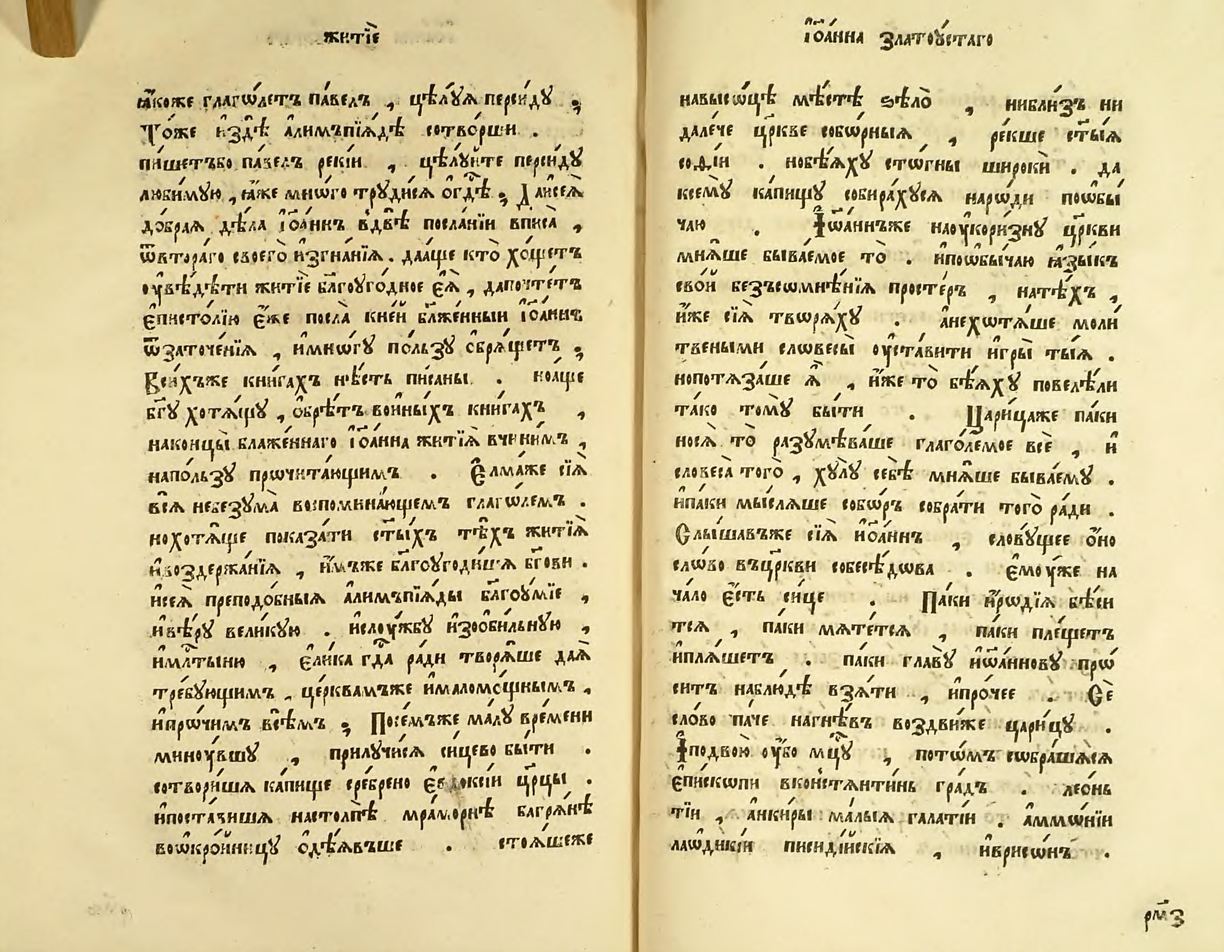 житїѐ
ꙗ҆́коже глаго́летъ па́велъ , цѣлꙋ́ѧ перси́дꙋ ;
То́же и҆здѣ̀ а҆лимъпїѧ́дѣ сотво́рши .
пи́шетъбо па́велъ реки́й , цѣлꙋ́йте перси́дꙋ
люби́мꙋю , ꙗ҆́же мнѡ́го трꙋди́сѧ о҆гдⷭ҇ѣ ; Да́исеѧ̀
дѡ́браѧ дѣ́ла і҆ѡа́ннъ вдвѣ̀ посла́нїи вписа̀ ,
ѿвтора́го своего̀ и҆згна́нїѧ . даа́ще кто̀ хо́щетъ
оу҆вѣ́дѣти житїѐ бл҃гоуго́дное є҆ѧ̀ , дапочте́тъ
є҆писто́лїю є҆́же посла̀ кне́й бл҃же́нный і҆ѡа́ннъ
ѿзаточе́нїѧ , и҆мнѡ́гꙋ по́льзꙋ ѻ҆брѧ́щетъ ;
Вси́хъже кни́гахъ нѣ́сть пи́саны . ноа́ще
бг҃ꙋ хотѧ́щꙋ , ѻ҆брѣ́тъ воины́хъ кни́гахъ ,
наконцы̀ блаже́ннаго і҆ѡа́нна житїѧ̀ вчини́мъ ,
напо́льзꙋ прочита́ющимъ . Є҆лма́же сїѧ̀
всѧ̀ небезꙋма̀ воспомина́ющемъ глаго́лемъ .
нохотѧ́ще показа́ти ст҃ы́хъ тѣ́хъ житїѧ̀
и҆воздержа́нїѧ , и҆́мъже бл҃гоугоди́шѧ бг҃ови .
и҆сеѧ̀ преподо́бныѧ а҆лимъпїѧ́ды бл҃гоу́мїе ,
и҆вѣ́рꙋ вели́кꙋю . и҆слоу́жбꙋ и҆зоби́льнꙋю ,
и҆млⷭ҇тыню , є҆ли́ка гдⷭ҇а ра́ди творѧ́ше даѧ̀
тре́бꙋющимъ , це́рквамъже и҆маломо́щнымъ ,
и҆про́чимъ всѣ́мъ ; Посе́мъже ма́лꙋ вре́мени
минꙋ́вшꙋ , прилꙋчи́сѧ си́цево бы́ти .
сотвори́шѧ ка́пище сре́брено є҆ѵдокси́и цр҃цы .
и҆поста́вишѧ настолпѣ̀ мра́морнѣ багрѧ́нѣ
воѡкро́йницꙋ ѻ҆дѣ́ѧвъше . стоѧ́шеже
і҆ѡа́нна златоꙋ́стаго
навысѡ́цѣ мѣ́стѣ ѕѣлѡ̀ , ниблизъ ни
дале́че цр҃кве собѡ́рныѧ , ре́кше ст҃ы́ѧ
соѳі́и . новѣ́ѧхꙋ стѡ́гны широкѝ . да
ксемꙋ̀ ка́пищꙋ собира́хꙋсѧ наро́ди поѡбы
ча́ю . І҆ѡа́ннъже наоу҆кори́знꙋ цр҃кви
мнѧ́ше быва́емое то̀ . и҆поѡбы́чаю ꙗ҆зы́къ
сво́й безъсомнѣ́нїѧ просте́ръ , натѣ́хъ ,
и҆́же сїѧ̀ творѧ́хꙋ . а҆нехотѧ́ше моли
твеными словесы̀ оу҆ста́вити и҆гры̀ ты́ѧ .
нопотѧза́ше ѧ҆̀ , и҆́же то̀ бѣ́ѧхꙋ повелѣ́ли
та́ко томꙋ̀ бы́ти . Цари́цаже па́ки
носѧ̀ то̀ разꙋмѣва́ше глаго́лемое всѐ , и҆
словеса̀ того̀ , хꙋлꙋ̀ себѣ̀ мнѧ́ше быва́емꙋ .
и҆па́ки мы́слѧше собѡ́ръ собра́ти того̀ ра́ди .
Слы́шавъже сїѧ̀ и҆ѡа́ннъ , словꙋ́щее ѻ҆но
сло́во въцр҃кви собесѣ́дова . є҆моу́же на
ча́ло є҆́сть си́це . Па́ки и҆родїѧ̀ бѣ́си
тсѧ , па́ки мѧте́тсѧ , па́ки пле́щетъ
и҆плѧ́шетъ . па́ки главꙋ̀ и҆ѡа́нновꙋ про́
ситъ наблю́дѣ взѧ́ти , и҆про́чее . Сѐ
сло́во па́че нагнѣ́въ воздви́же цари́цꙋ .
І҆подвою̀ оу҆́бо мцⷭ҇ꙋ , пото́мъ собра́шѧсѧ
є҆пи́скопи вконстѧнти́нь гра́дъ . лео́нь
ті́и , а҆нки́ры ма́лыѧ гала́тїи . а҆ммѡ́нїи
лаѡдикі́и писиді́йскїѧ , и҆врисѡ́нъ .
рм҃з